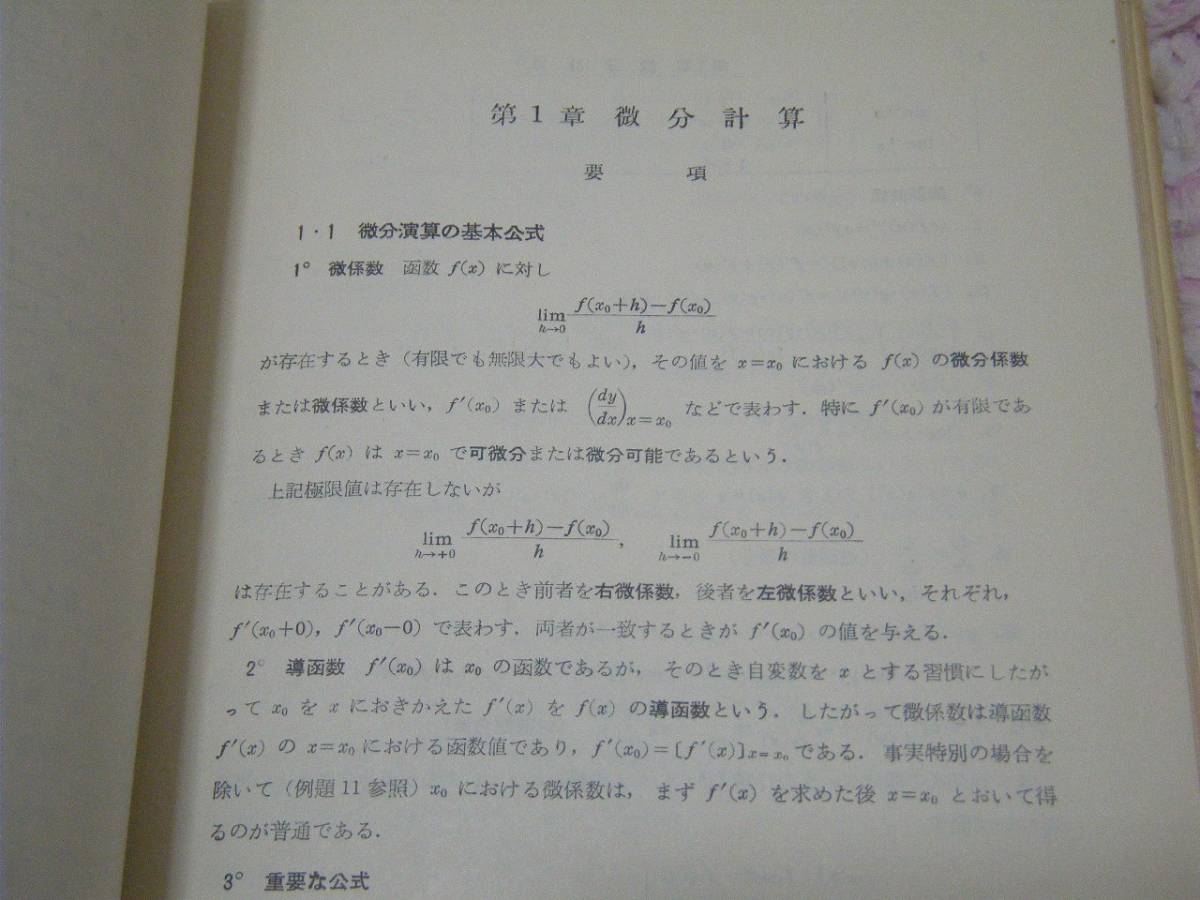 第1章 微分計算
要 項
1・1 微分演算の基本公式
1° 微係数 函数 f(x) に対し
lim_{h→0} \frac{f(x₀+h)−f(x₀)}{h}
が存在するとき（有限でも無限大でもよい），その値を x=x₀ における f(x) の微分係数
または微係数といい，f′(x₀) または (dy/dx)_{x=x₀} などで表わす．特に f′(x₀) が有限であ
るとき f(x) は x=x₀ で可微分または微分可能であるという．
上記極限値は存在しないが
lim_{h→+0} \frac{f(x₀+h)−f(x₀)}{h}， lim_{h→−0} \frac{f(x₀+h)−f(x₀)}{h}
は存在することがある．このとき前者を右微係数，後者を左微係数といい，それぞれ，
f′(x₀+0)，f′(x₀−0) で表わす．両者が一致するときが f′(x₀) の値を与える．
2° 導函数 f′(x₀) は x₀ の函数であるが，そのとき自変数を x とする習慣にしたが
って x₀ を x におきかえた f′(x) を f(x) の導函数という．したがって微係数は導函数
f′(x) の x=x₀ における函数値であり，f′(x₀)=[f′(x)]_{x=x₀} である．事実特別の場合を
除いて（例題11参照）x₀ における微係数は，まず f′(x) を求めた後 x=x₀ とおいて得
るのが普通である．
3° 重要な公式